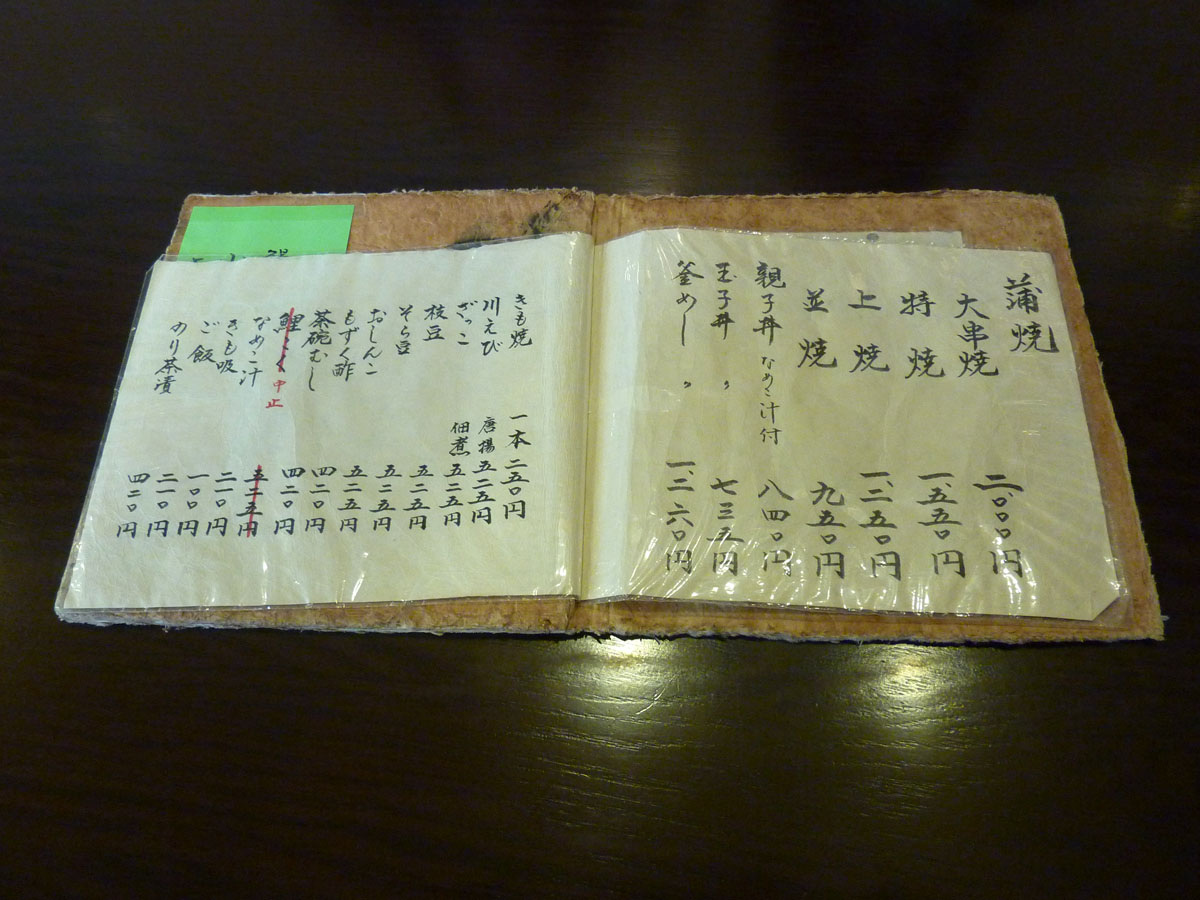 蒲焼
大串焼 二、〇〇〇円
特焼 一、五五〇円
上焼 一、二五〇円
並焼 九五〇円
親子丼 なめこ汁付 八四〇円
玉子丼 〃 七三五円
釜めし 〃 一、二六〇円
きも焼 一本 二五〇円
川えび 唐揚 五二五円
ざっこ 佃煮 五二五円
枝豆 五二五円
そら豆 五二五円
おしんこ 五二五円
もずく酢 四二〇円
茶碗むし 四二〇円
鯉こく 中止 五二五円
なめこ汁 二一〇円
きも吸 一〇〇円
ご飯 二一〇円
のり茶漬 四二〇円